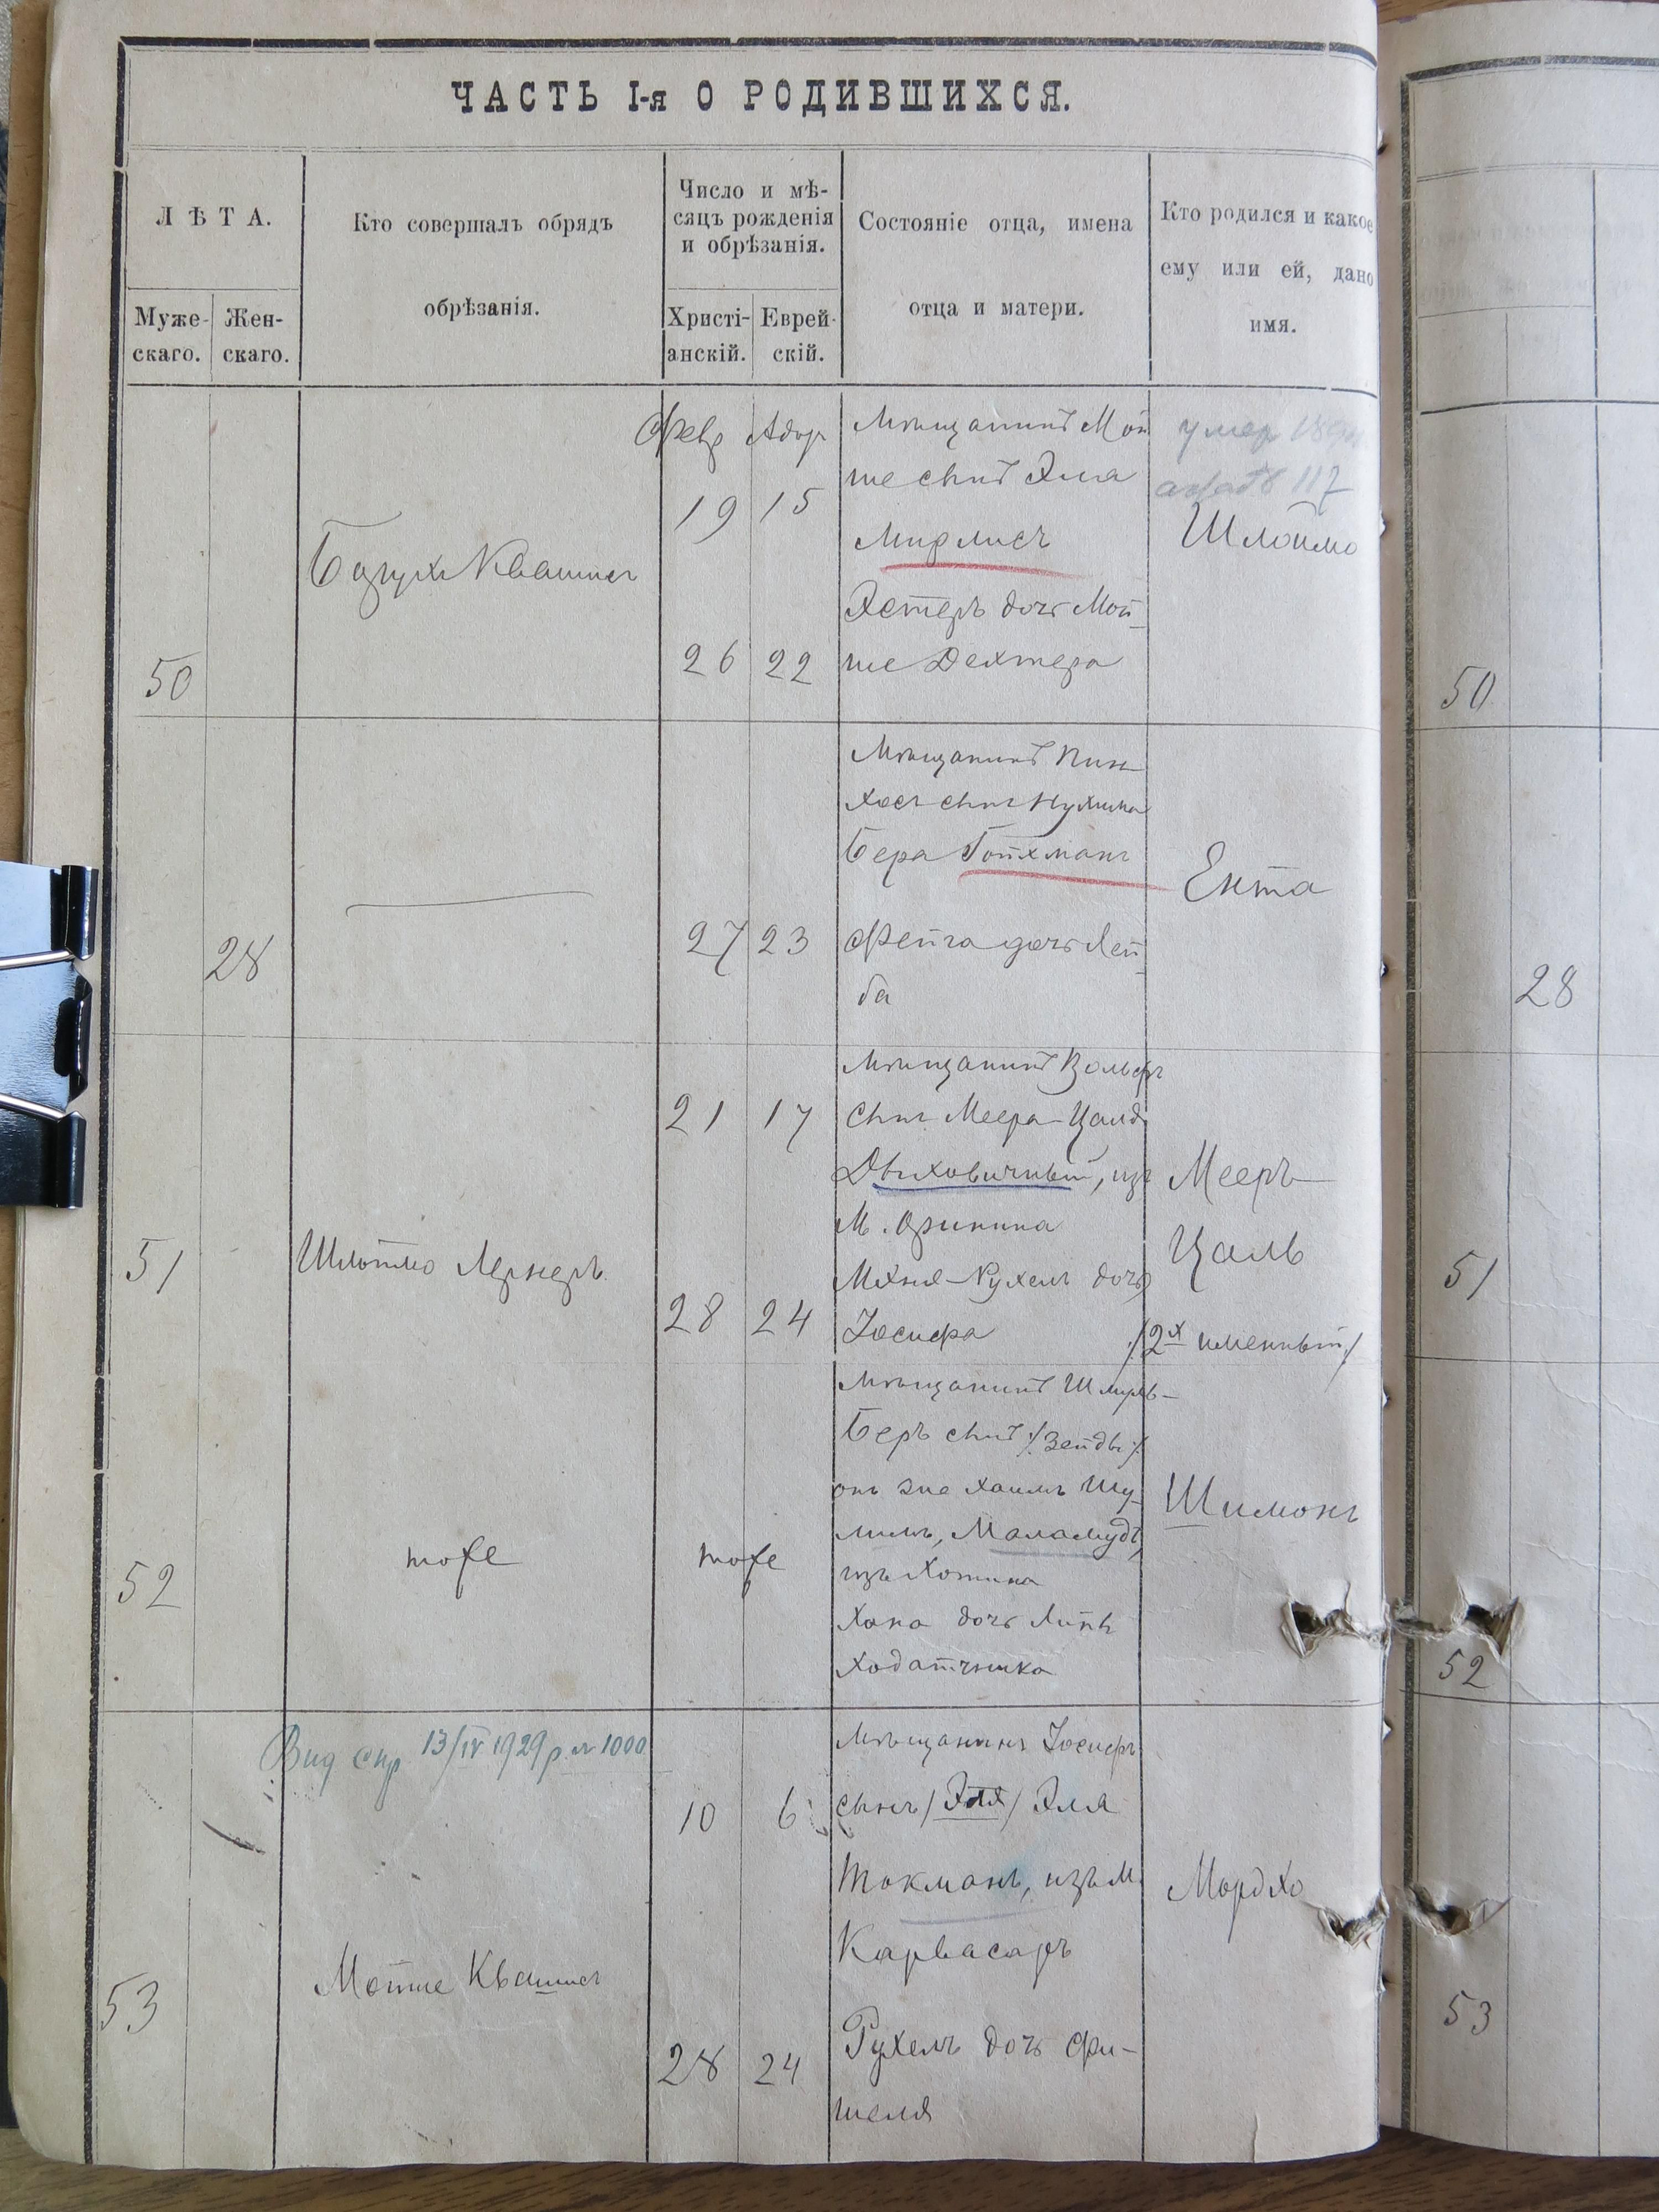 ЧАСТЬ I-я О РОДИВШИХСЯ.
ЛѢТА.
Муже-
скаго.
Жен-
скаго.
Кто совершалъ обрядъ
обрѣзанія.
Число и мѣ-
сяцъ рожденія
и обрѣзанія.
Христі-
анскій.
Еврей-
скій.
Состояніе отца, имена
отца и матери.
Кто родился и какое
ему или ей, дано
имя.
50
Барухъ Квашисъ
Февр Адар
19 15
26 22
Мѣщанинъ Мой
ше сынъ Эля
Мирмисъ
Эстеръ дочь Мой-
ше Дехтера
умер 189
актъ 117
Шлоймо
50
28
27 23
Мѣщанинъ Пин-
хосъ сынъ Нухима
Бера Гойхманъ
Фейга дочь Лей-
ба
Ента
28
51
Шлоймо Лернеръ
21 17
28 24
Мѣщанинъ Вольфъ
сынъ Меера-Цаля
Дыховичный, изъ
м. Фринина
Рухель дочь
Іосифа
Мееръ-
Цаль
/2х именный/
51
52
тоже
тоже
Мѣщанинъ Шмуль-
Беръ сынъ /Зейды/
онъ же Хаимъ Шу-
лимъ, Маламудъ,
изъ Хотина
Хана дочь Липы
Ходатчника
Шимонъ
52
Вид спр 13/IV 1929 р. № 1000
53
Мойше Квашисъ
10 6
28 24
Мѣщанинъ Іосифъ
сынъ /Эля/ Эля
Токманъ, изъ м.
Карвасаръ
Рухель дочь Фи-
шеля
Мордхо
53